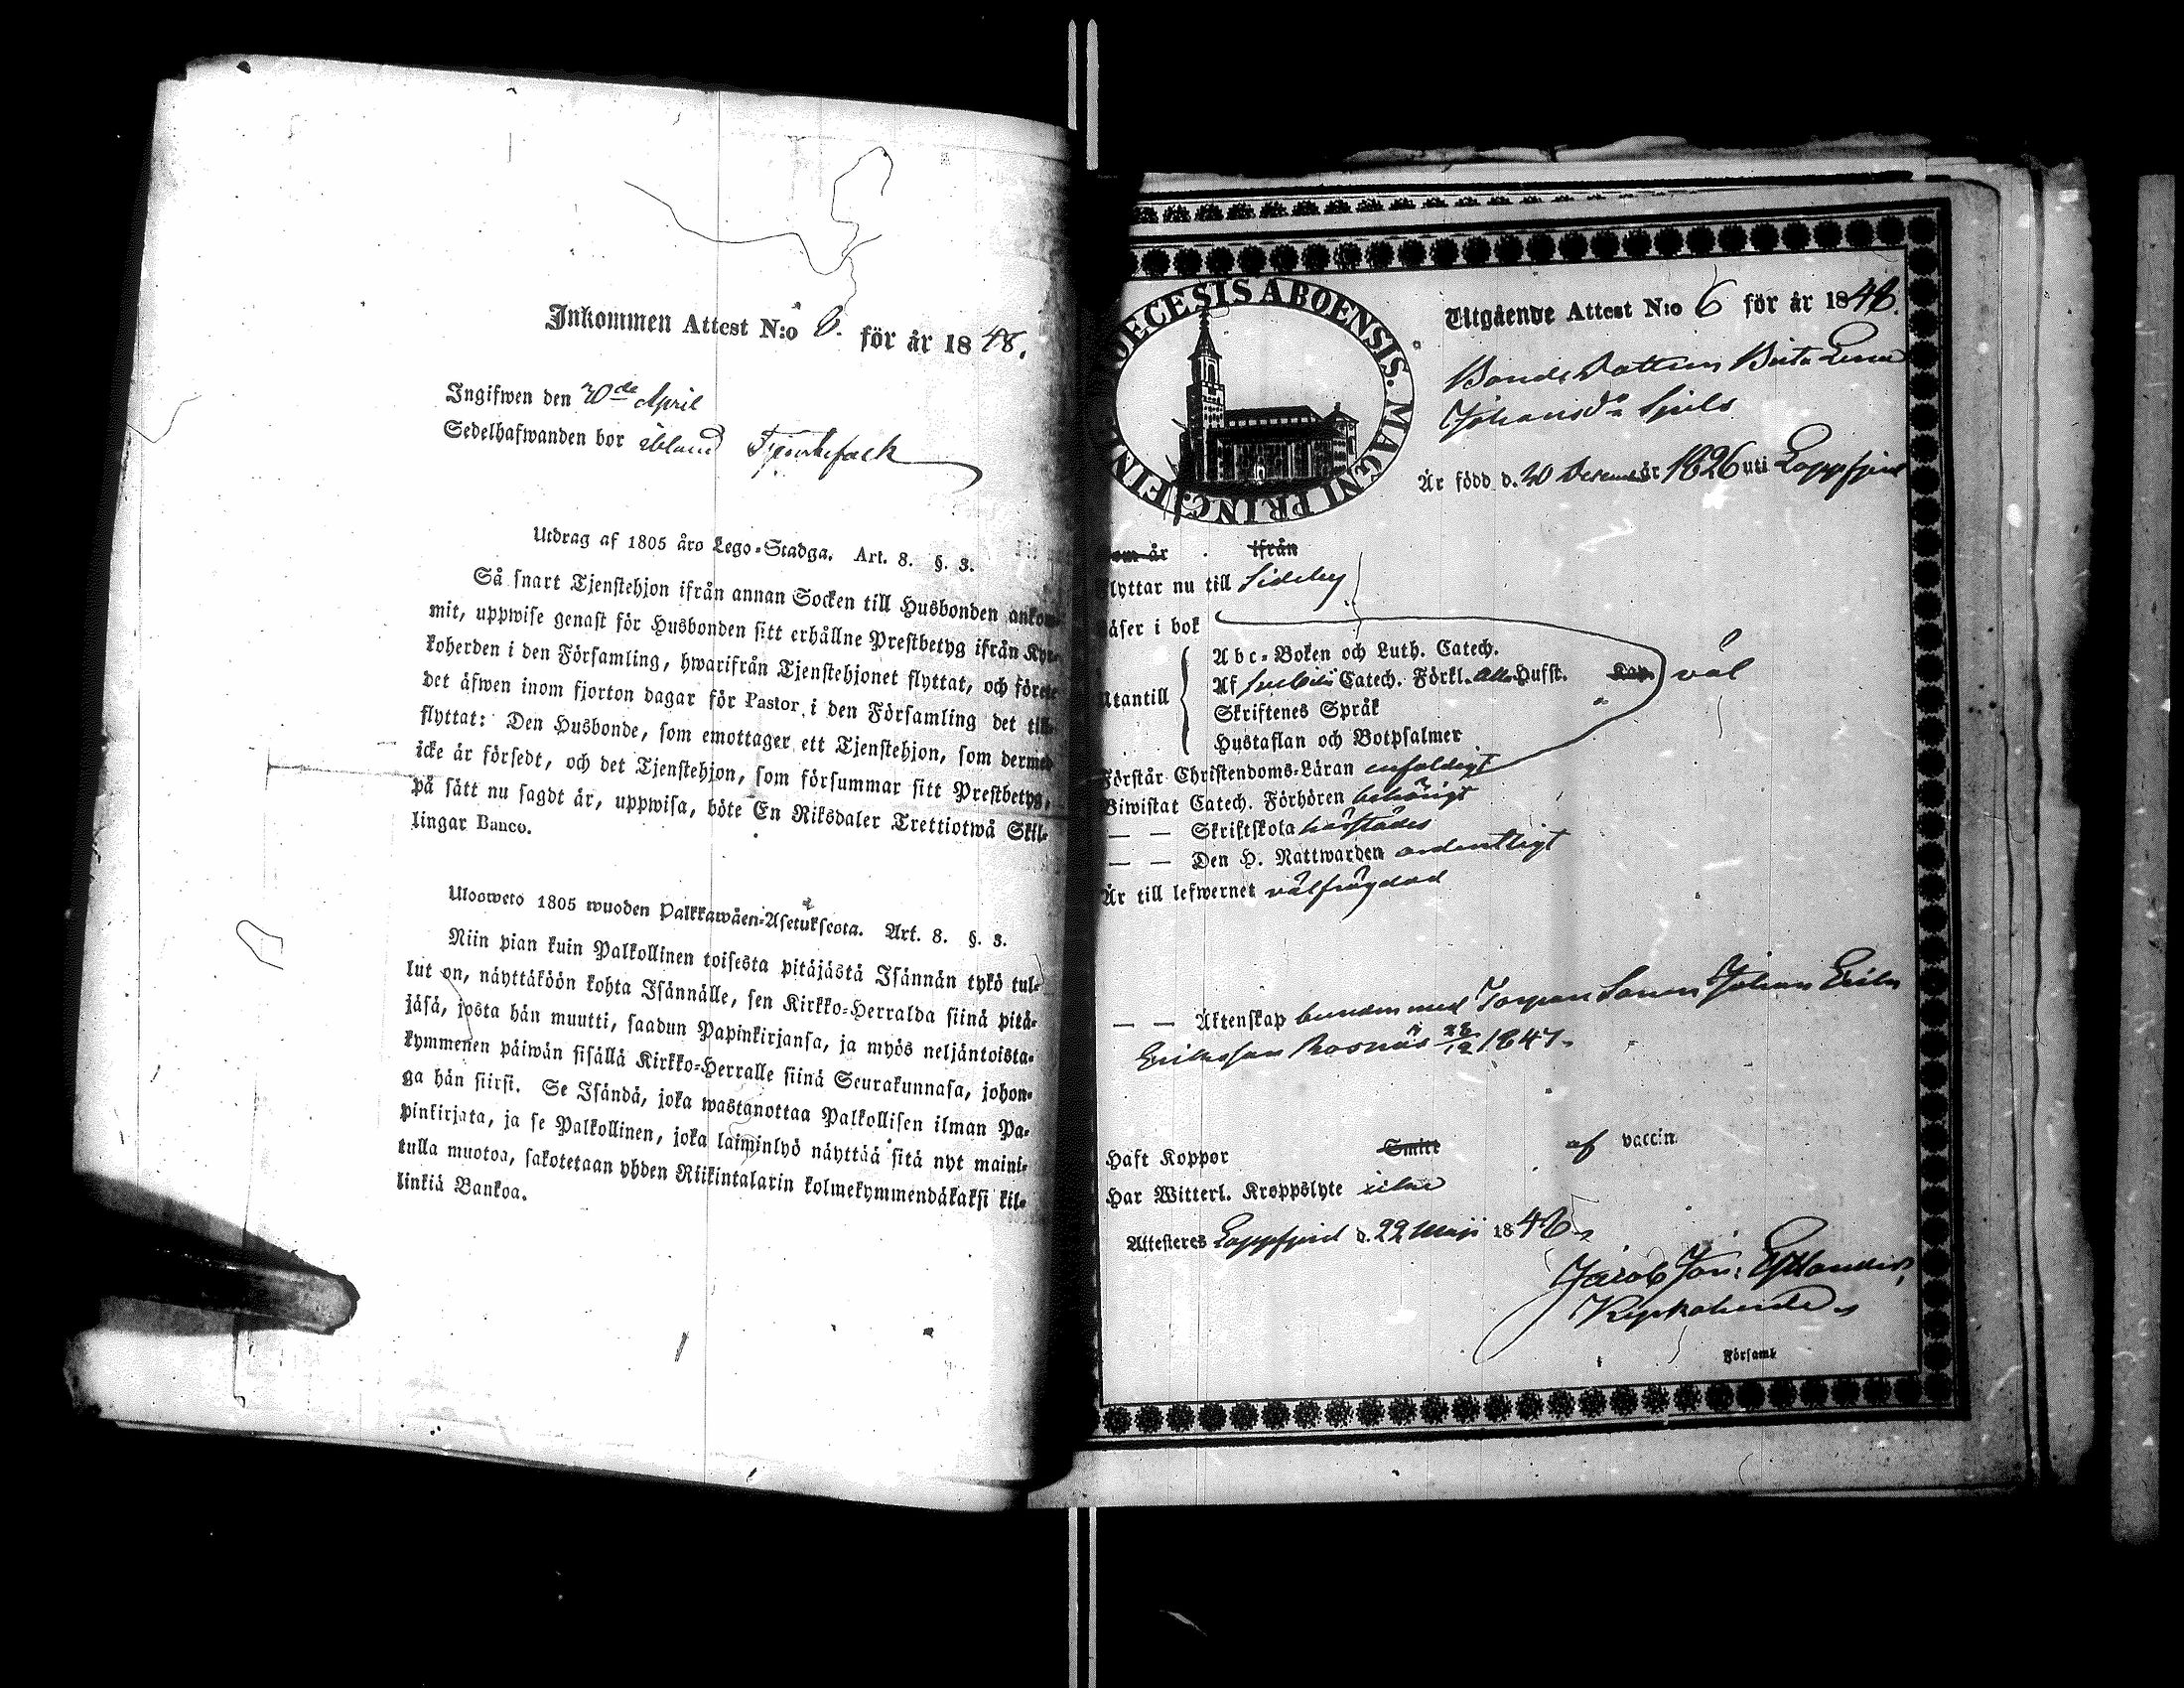 Inkommen Attest N:o 6. för år 1848.
Ingifwen den 30de April
Sedelhafwanden bor ibland Tjenstefolk
Utdrag af 1805 års Lego-Stadga. Art. 8. §. 3.
Så snart Tjenstehjon ifrån annan Socken till Husbonden ankom-
mit, uppwise genast för Husbonden sitt erhållne Prestbetyg ifrån Kyr-
koherden i den Församling, hwarifrån Tjenstehjonet flyttat, och förete
det äfwen inom fjorton dagar för Pastor i den Församling det till-
flyttat: Den Husbonde, som emottager ett Tjenstehjon, som dermed
icke är försedt, och det Tjenstehjon, som försummar sitt Prestbetyg,
på sätt nu sagdt är, uppwisa, böte En Riksdaler Trettiotwå Skil-
lingar Banco.
Ulosweto 1805 wuoden Palkkawäen-Asetuksesta. Art. 8. §. 3.
Niin pian kuin Palkollinen toisesta pitäjästä Isännän tykö tul-
lut on, näyttäköön kohta Isännälle, sen Kirkko-Herralda siinä pitä-
jäsä, josta hän muutti, saadun Papinkirjansa, ja myös neljäntoista-
kymmenen päiwän sisällä Kirkko-Herralle siinä Seurakunnasa, johon-
ga hän siirsi. Se Isändä, joka wastanottaa Palkollisen ilman Pa-
pinkirjata, ja se Palkollinen, joka laiminlyö näyttää sitä nyt maini-
tulla muotoa, sakotetaan yhden Riikintalarin kolmekymmendäkaksi kil-
linkiä Bankoa.
DIOECESIS ABOENSIS. MAGNI PRINC. FIN
Utgående Attest N:o 6 för år 1848.
Bonde Dottren Brita Lena
Johansdr Sjels
Är född d. 30 Decemb år 1826 uti Lappfjerd
om år ifrån
lyttar nu till Sideby
äser i bok
Abc-Boken och Luth. Catech.
Af Svebilii Catech. Förkl. alla Hufst. Kap. väl
tantill
Skriftenes Språk
Hustaflan och Botpsalmer
Förstår Christendoms-Läran enfaldigt
Biwistat Catech. Förhören behörigt
— — Skriftskola härstädes
— — Den H. Nattwarden ordentligt
Är till lefwernet välfrägdad
— — Äktenskap bunden med Torpare Sonen Johan Erik
Eriksson Rosnäs 26/12 1847.
Haft Koppor Smitt af vaccin
Har Witterl. Kroppslyte icke
Attesteres Lappfjerd d. 22 Maji 1848
Jacob Jon: Estlander
Kyrkoherde
i Församl